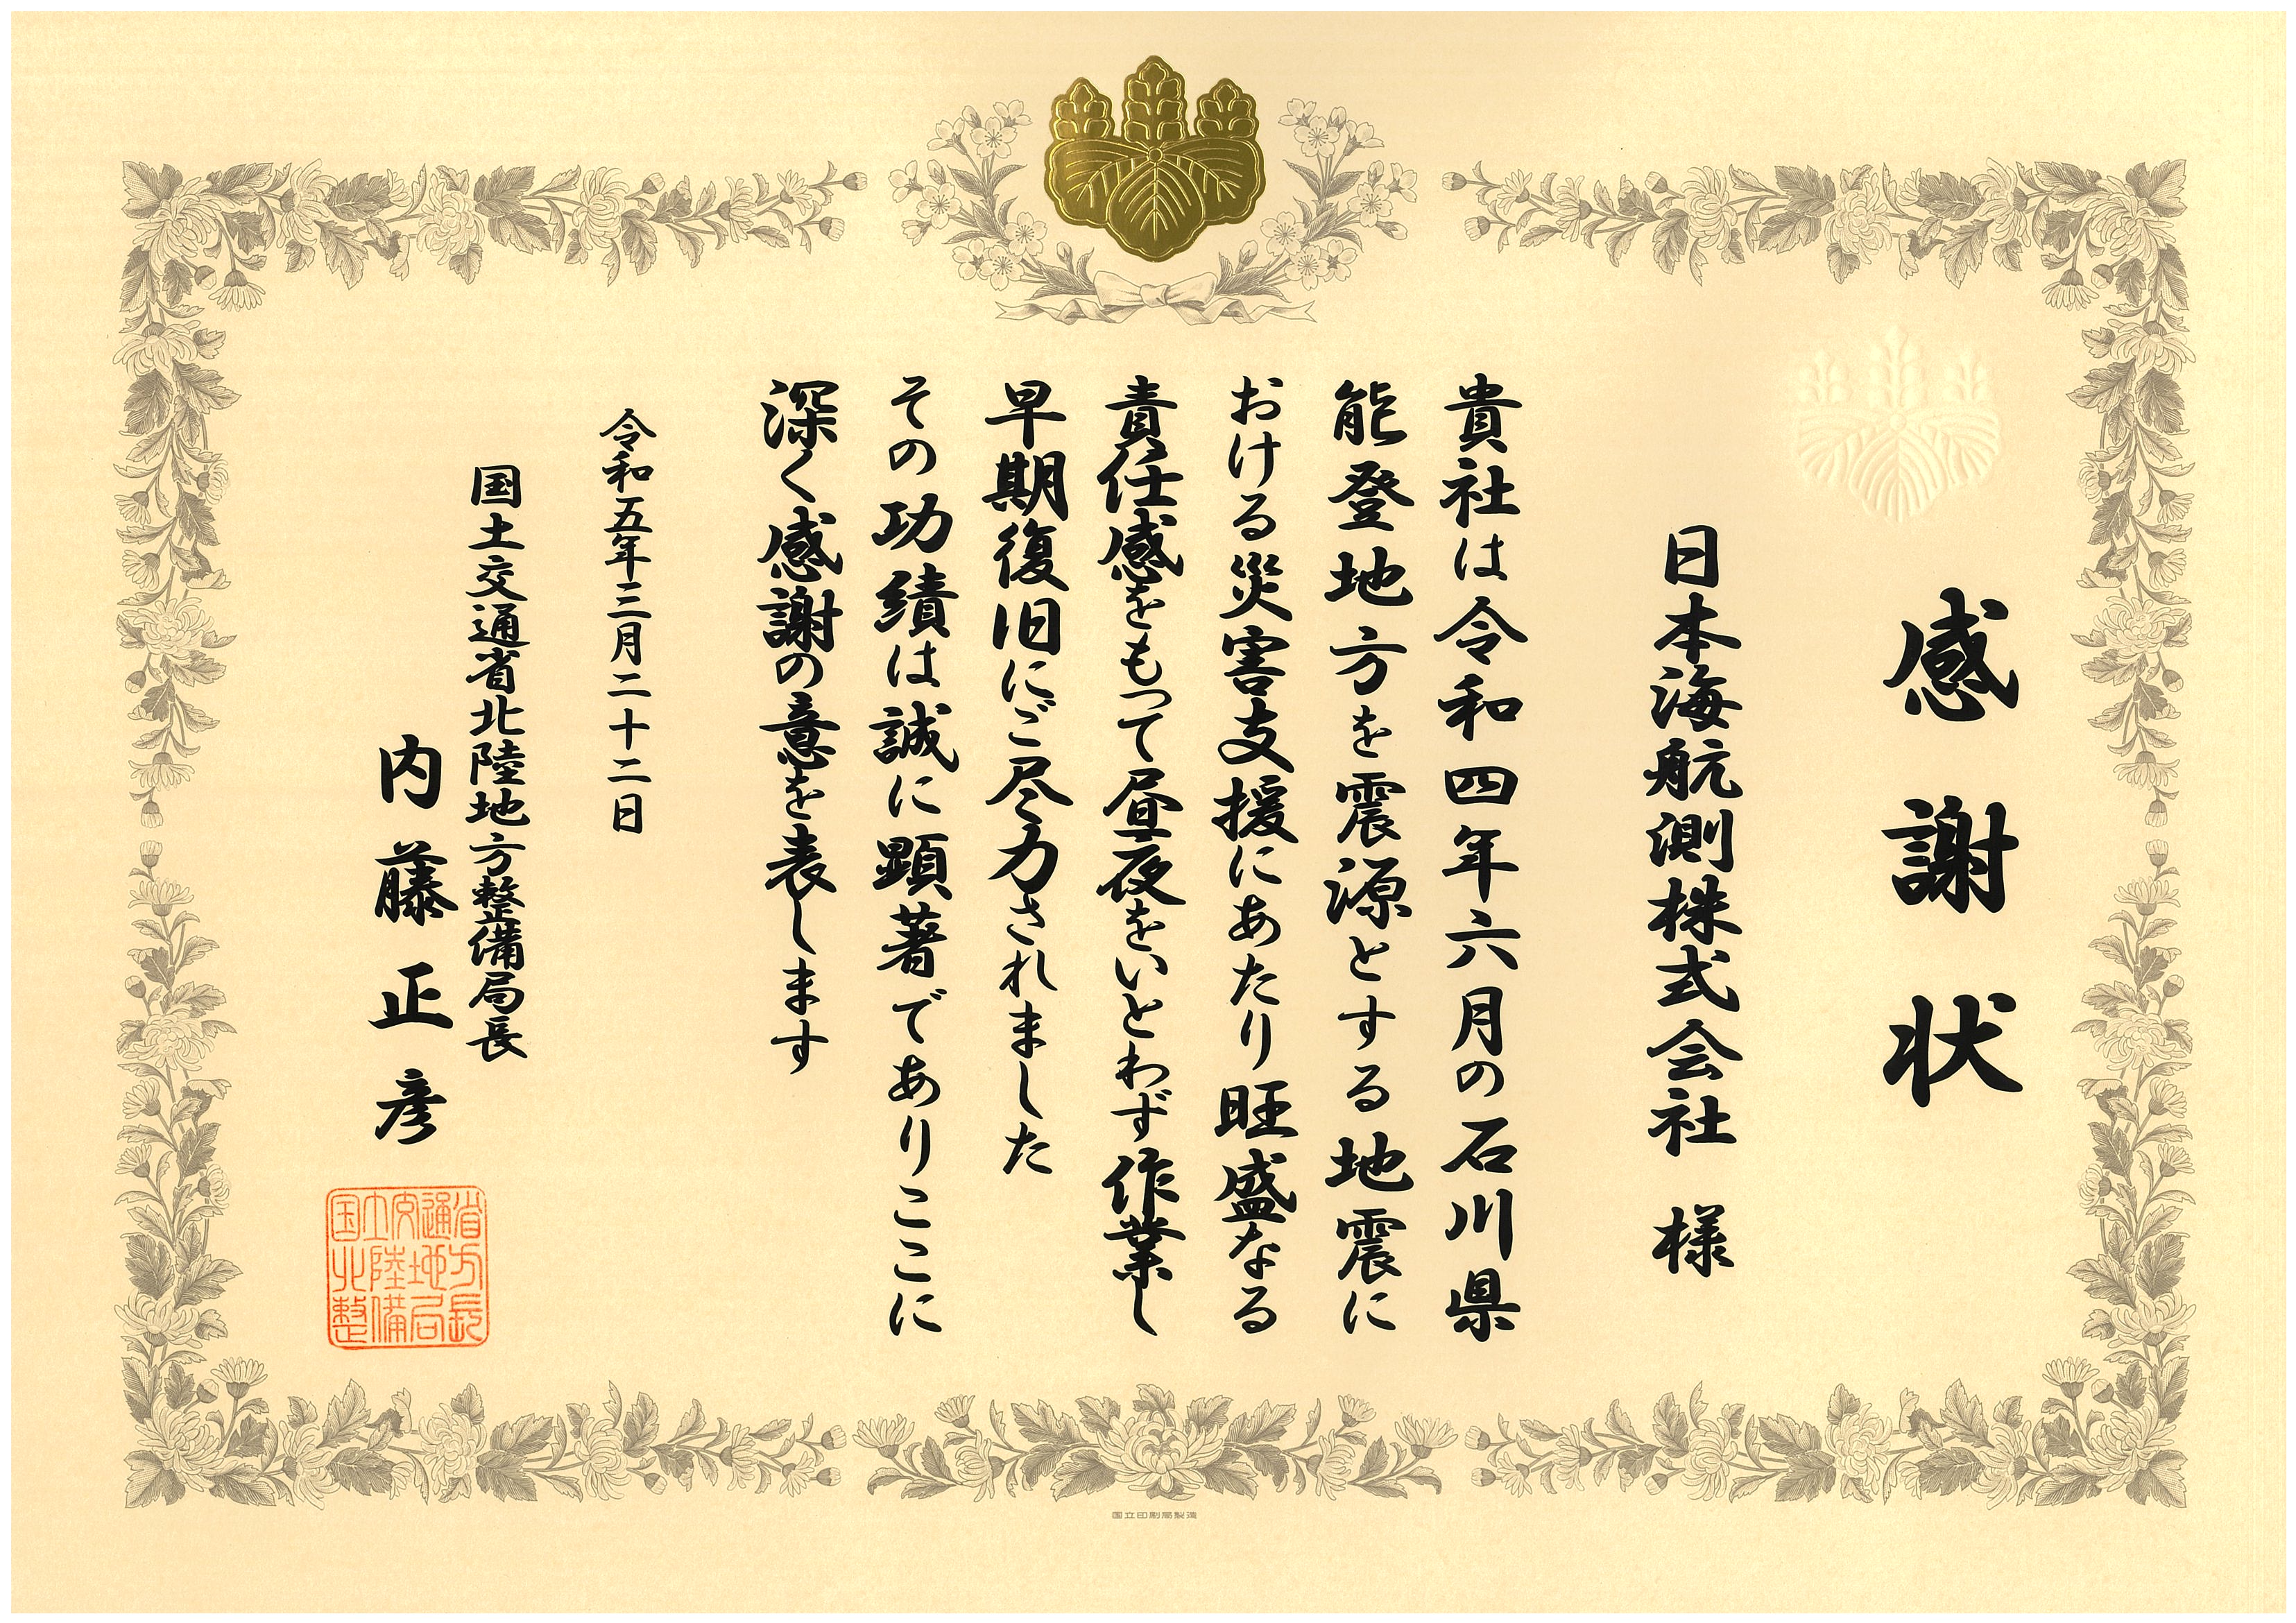 感謝状
日本海航測株式会社 様
貴社は令和四年六月の石川県
能登地方を震源とする地震に
おける災害支援にあたり旺盛なる
責任感をもって昼夜をいとわず作業し
早期復旧にご尽力されました
その功績は誠に顕著でありここに
深く感謝の意を表します
令和五年三月二十二日
国土交通省北陸地方整備局長
内藤正彦
国土交通省
北陸地方
整備局長
国立印刷局製造